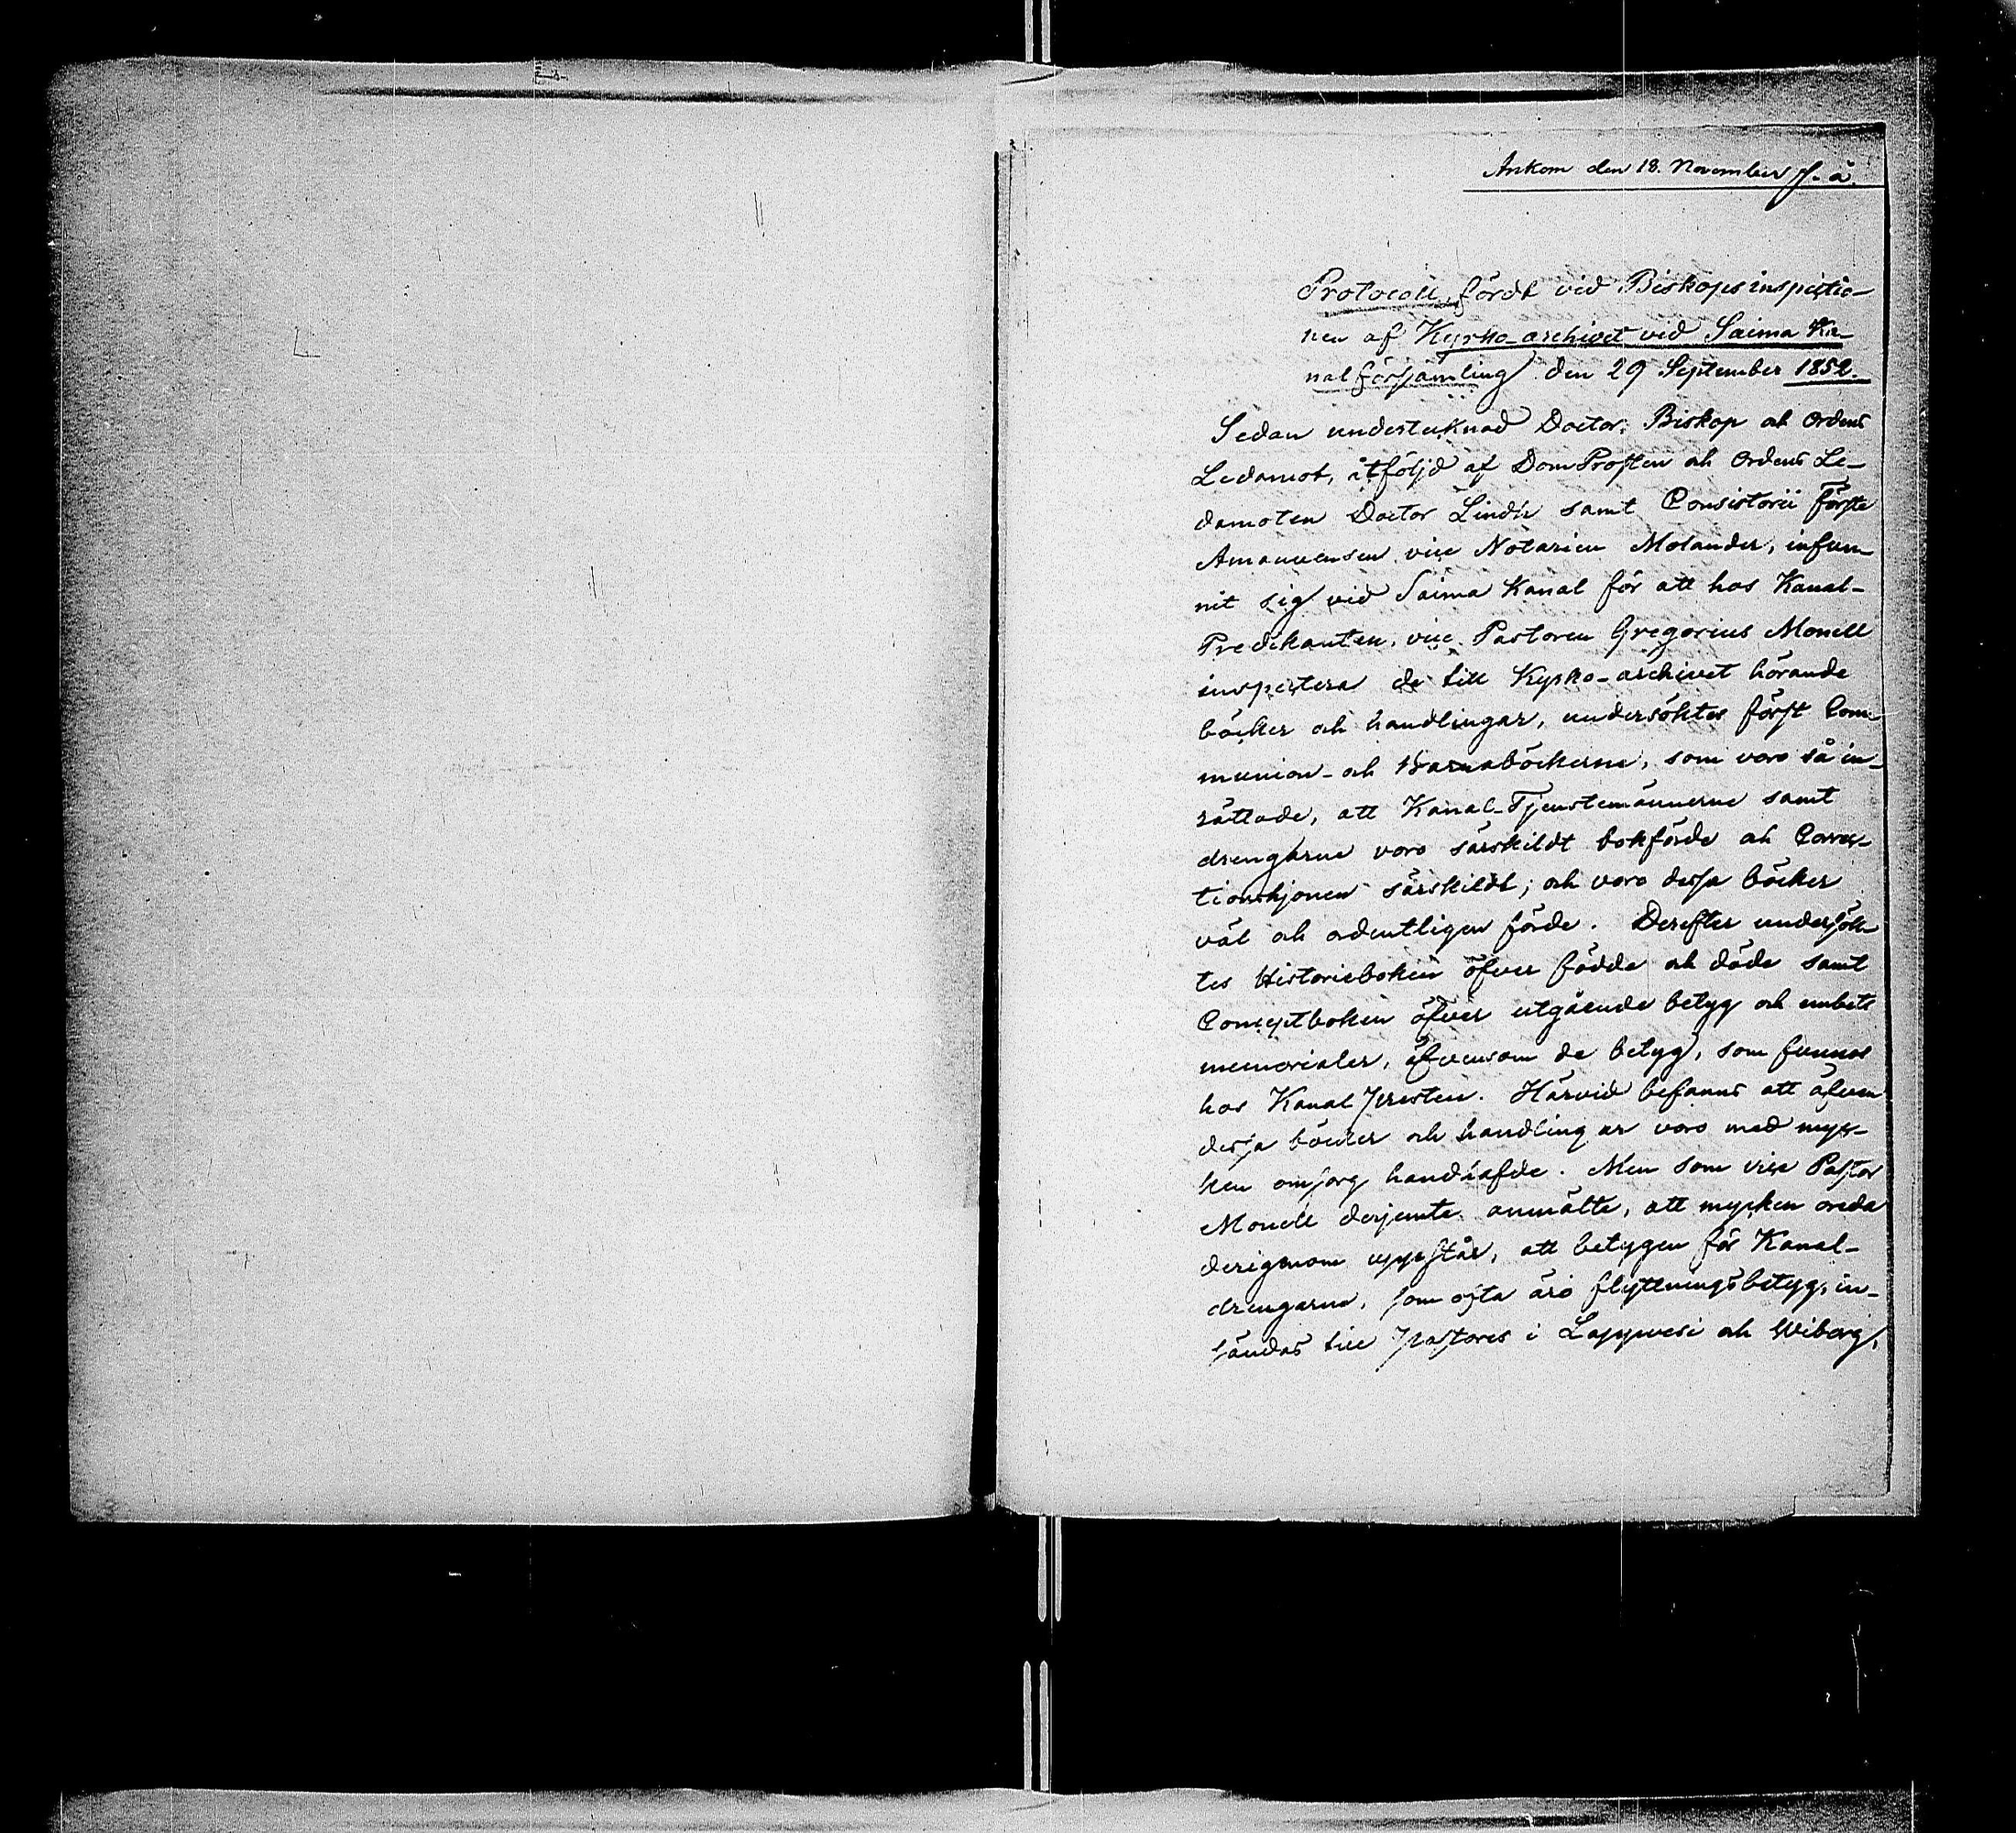 Ankom den 18. November s. å.
Protocoll, fördt vid Biskopsinspectio-
nen af Kyrko-archivet vid Saima Ka-
nal församling den 29 September 1852.
Sedan undertecknad Doctor, Biskop och Ordens
Ledamot, åtföljd af DomProsten och Ordens Le-
damoten Doctor Lindh samt Consistorii förste
Amanuensen vice Notarien Molander, infun-
nit sig vid Saima Kanal för att hos Kanal-
Predikanten, vice Pastoren Gregorius Monell
inspectera de till Kyrko-archivet hörande
böcker och handlingar, undersöktes först Com-
munion- och Barnaböckerne, som voro så in-
rättade, att Kanal-Tjenstemännerne samt
drengarne voro särskildt bokförde och Correc-
tionshjonen särskildt; och voro dessa böcker
väl och ordentligen förde. Derefter undersök-
tes Historieboken öfver födde och döde samt
Conceptboken öfver utgående betyg och embets
memorialer, äfvensom de betyg, som funnos
hos Kanal Presten. Härvid befanns att äfven
dessa böcker och handlingar voro med myc-
ken omsorg handhafde. Men som vice Pastor
Monell derjemte anmälte, att mycken oreda
derigenom uppstår, att betygen för Kanal-
drengarne, som ofta äro flyttningsbetyg, in-
sändas till Pastores i Lappvesi och Wiborg,